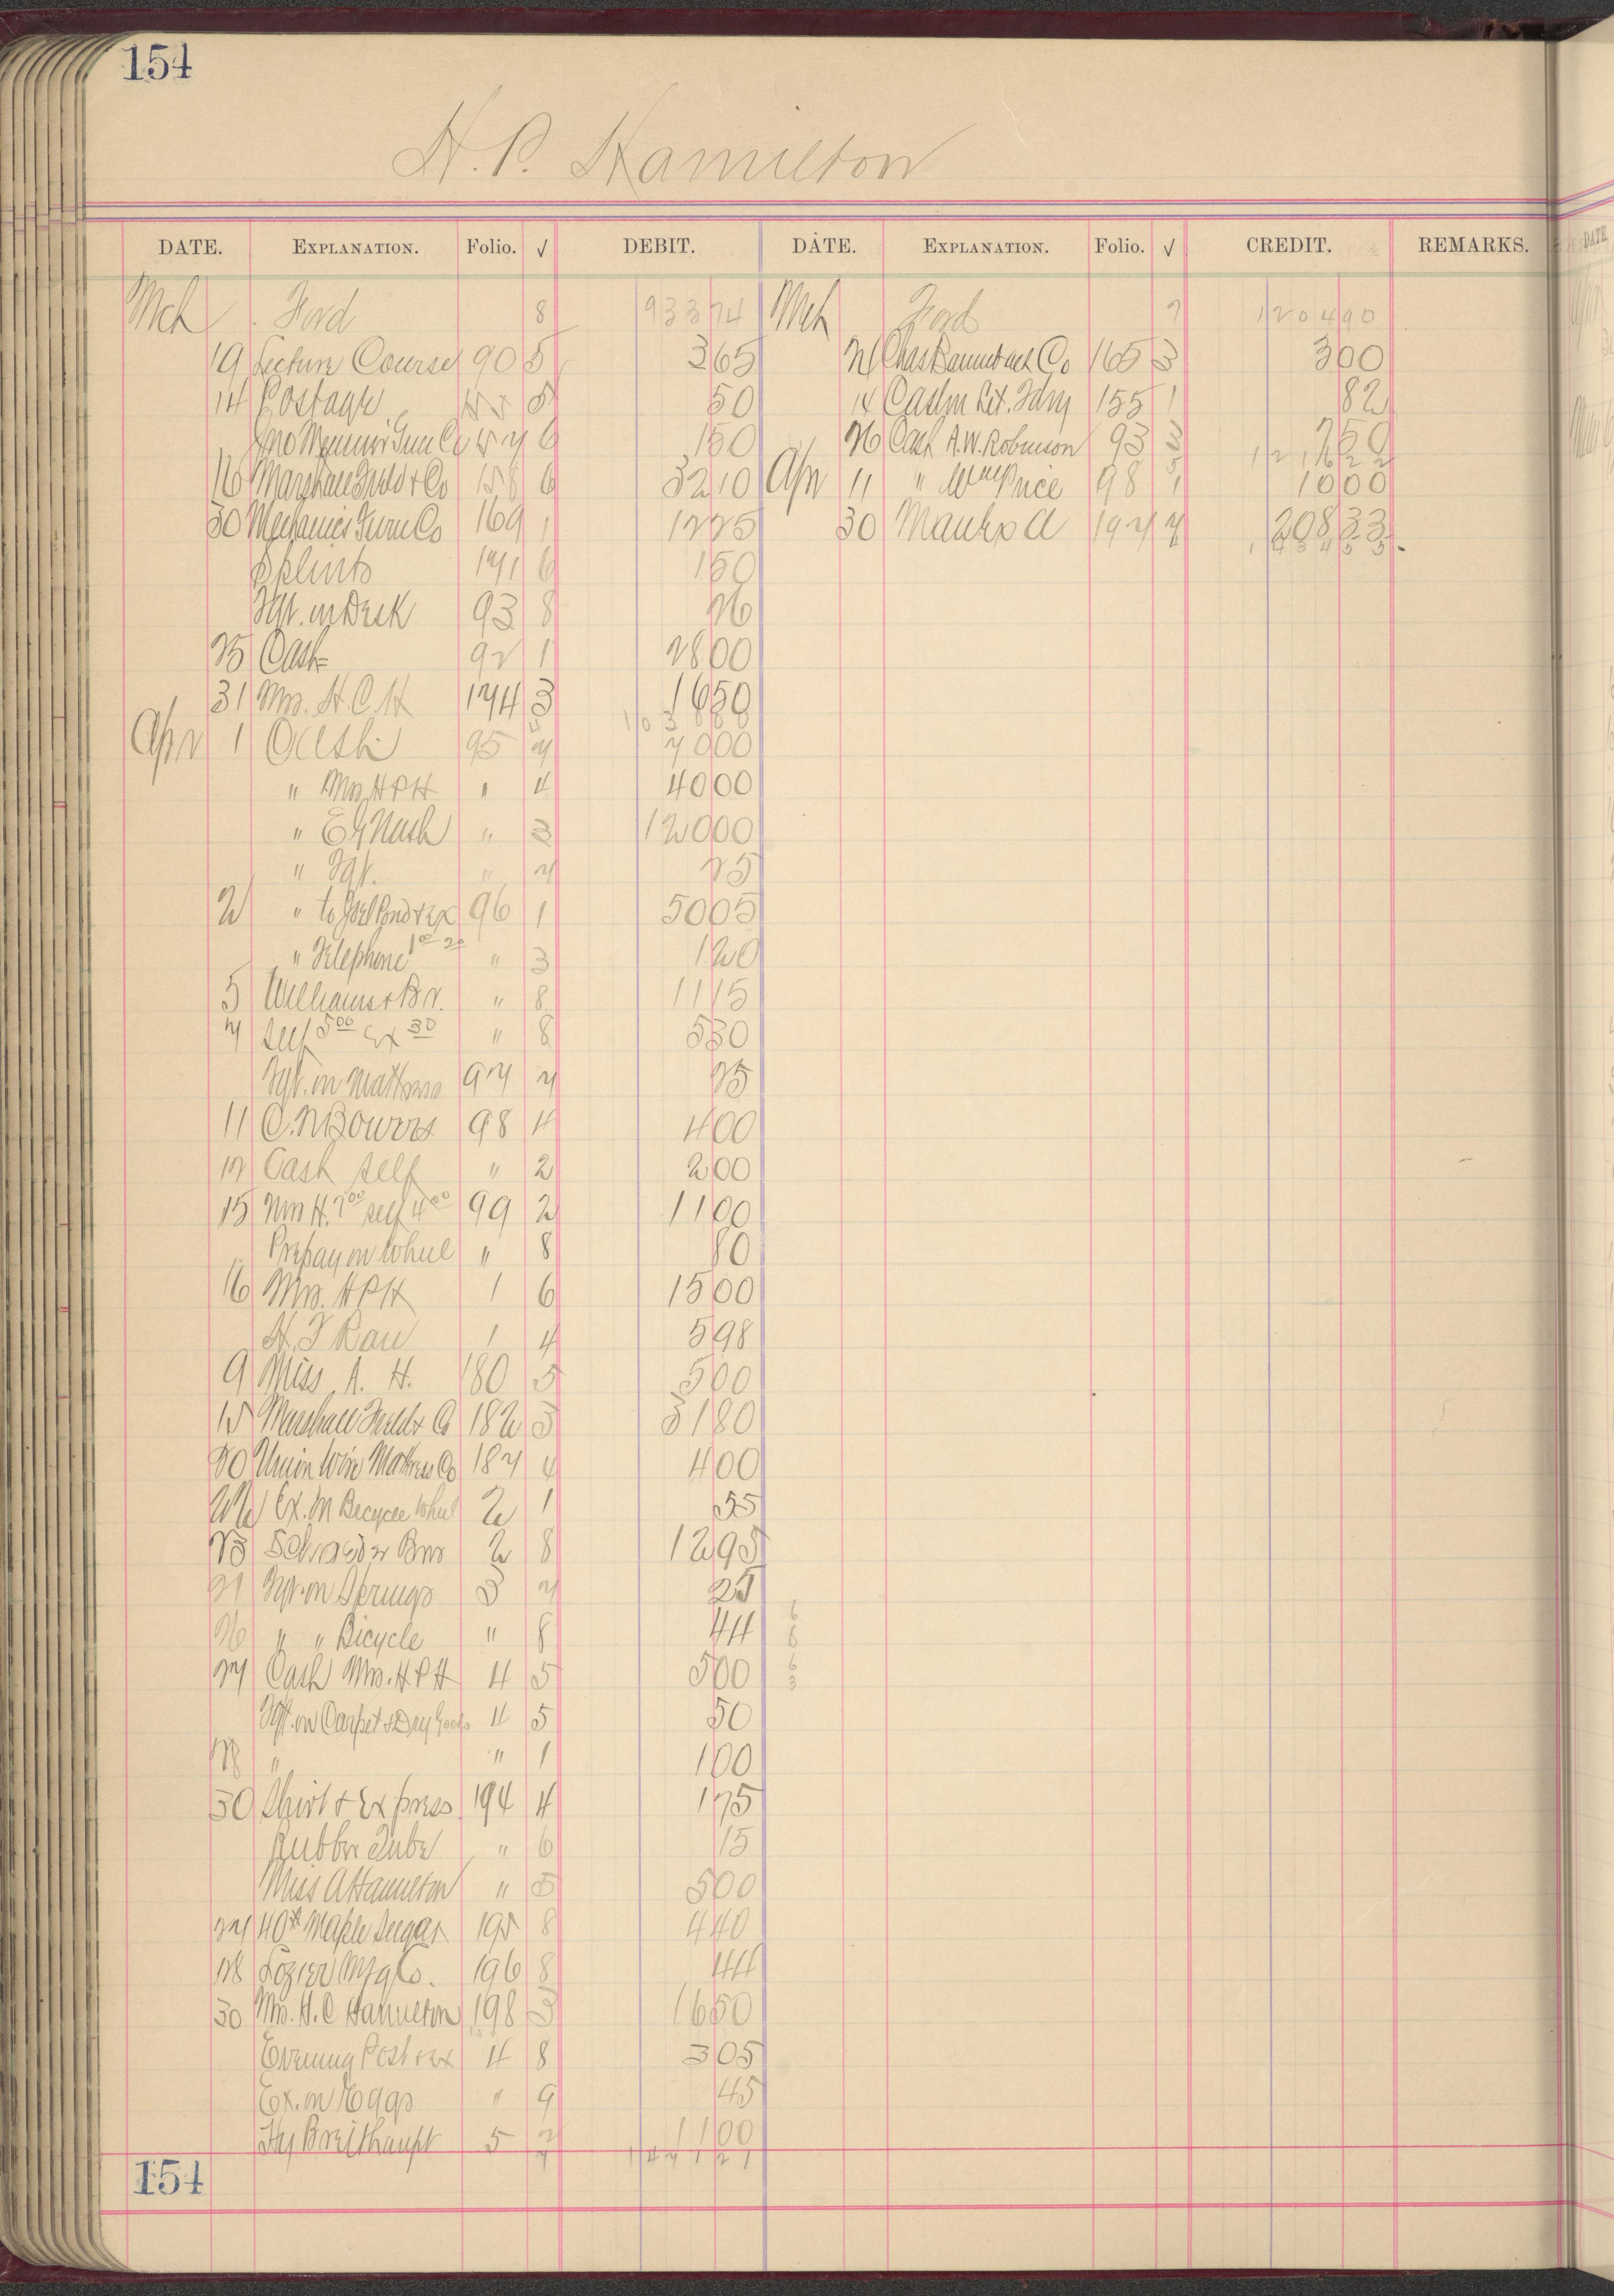 154
H. P. Hamilton
DATE. EXPLANATION. Folio. √ DEBIT. DATE. EXPLANATION. Folio. √ CREDIT. REMARKS.
Mch Ford 8 933 74 Mch Ford 7 1204 90
19 Lecture Course 90 5 3 65 Co 165 3 3 00
14 Postage 5 50 14 Cash 155 1 82
6 1 50 26 Cash A.W. Robinson 93 3 7 50
1216 22
16 Marshall Field & Co 158 6 32 10 Apr 11 " Wm Price 98 1 10 00
30 Mechanics Furn Co 169 1 12 25 30 194 208 33
1434 55
Splints 171 6 1 50
Fgt. on Desk 93 8 26
25 Cash 92 1 28 00
31 Mrs. H. C. H 174 3 16 50
Apr 1 Cash 95 7
" Mrs HPH " 4 40 00
" E G Nash " 3 120 00
" Fgt. " 7 25
2 " to & Ex 96 1 50 05
" Telephone 1 00 20 " 3 1 20
5 Williams & Br. " 8 11 15
7 Self 5 00 Ex 30 " 8 5 30
Fgt. on Mattress 97 7 25
11 C. N Bowers 98 4 4 00
12 Cash self " 2 2 00
15 Mrs H. 7 00 self 4 00 99 2 11 00
Prepay on Wheel " 8 80
16 Mrs. HPH 1 6 15 00
H. F Rau 1 4 5 98
9 Miss A. H. 180 5 5 00
15 Marshall Field & Co 182 3 31 80
20 Union Wire Mattress Co 187 4 4 00
22 Ex. on Bicycle Wheel 2 1 35
23 Schroeder Bros 2 8 12 95
Fgt. on Springs 3 7 25
26 " " Bicycle " 8 44
27 Cash Mrs. H P H 4 5 5 00
Fgt. on Carpet & Dry Goods 4 5 50
28 " " 1 1 00
30 Shirt & Express 194 4 1 75
Rubber Tube " 6 15
Miss A Hamilton " 5 5 00
27 40# Maple Sugar 195 8 4 40
28 Lozier Mfg Co. 196 8 44
30 Mrs. H. C Hamilton 198 3 16 50
Evening Post & Ex 4 8 3 05
Ex. on Eggs " 9 45
Hy Breithaupt 5 11 00
1471 21
154